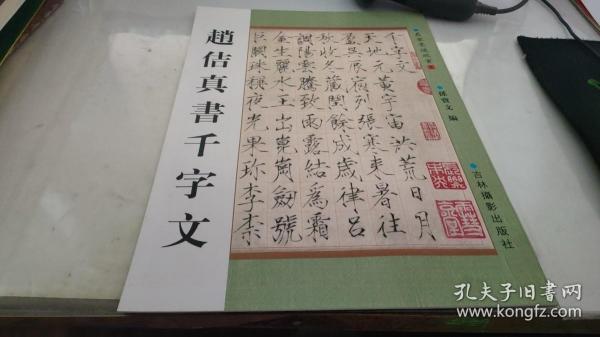 趙佶真書千字文
孫寶文 編
吉林攝影出版社
千字文
天地元黃宇宙洪荒日月
盈昃辰宿列張寒來暑往
秋收冬藏閏餘成歲律呂
調陽雲騰致雨露結為霜
金生麗水玉出崑崗劍號
巨闕珠稱夜光果珍李柰
孔夫子旧书网
www.kongfz.com